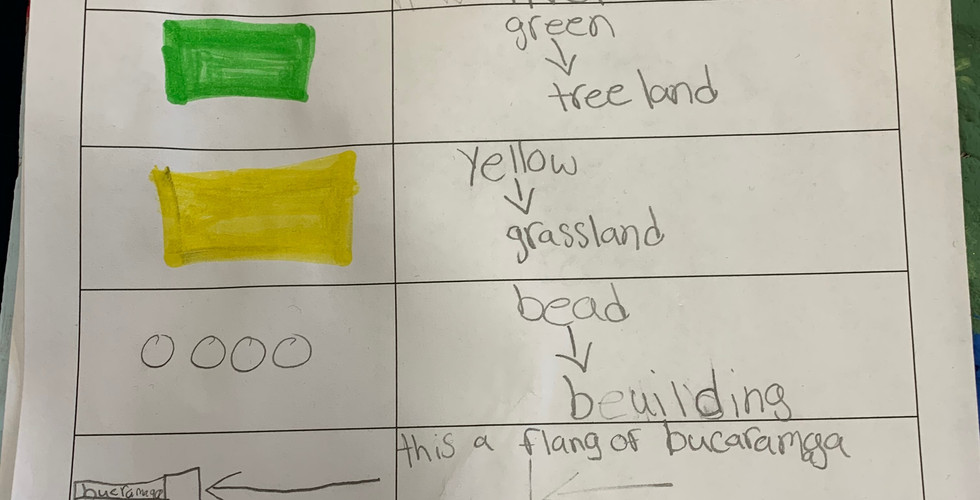 green
tree land
yellow
grassland
bead
beuilding
this a flang of bucaramga
bucramga